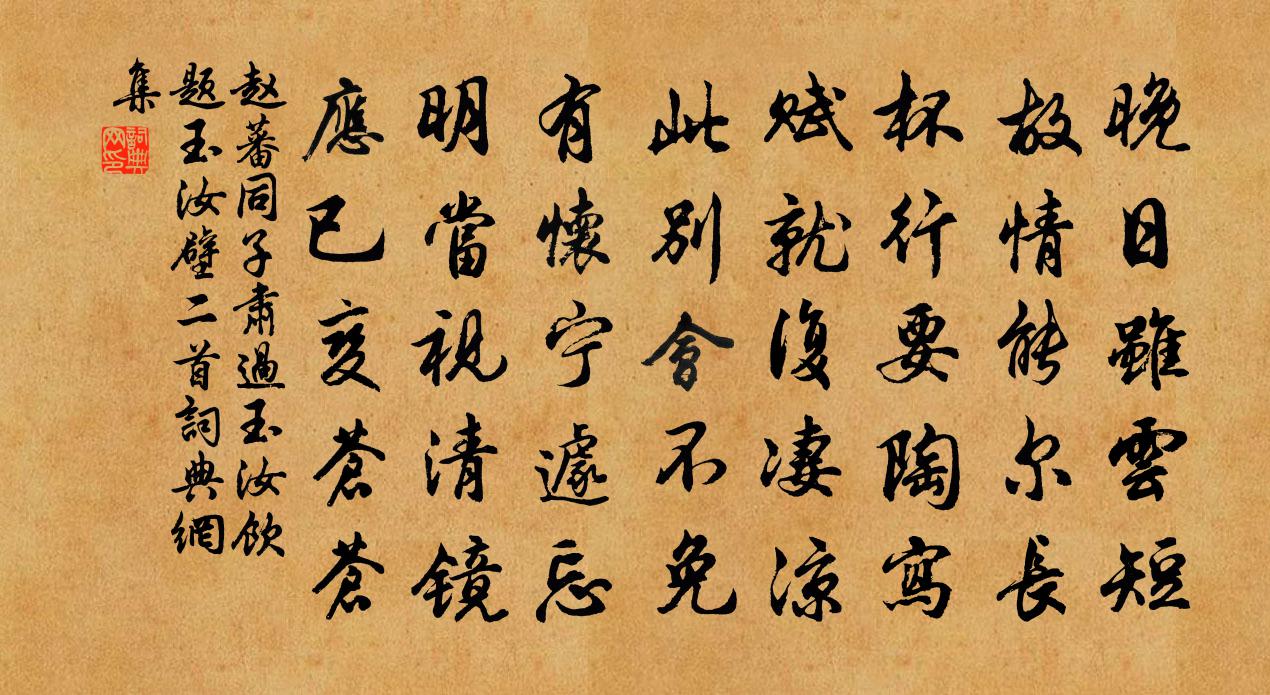 晚日雖雲短
故情能尔長
杯行要陶寫
賦就復凄涼
此別會不免
有懷宁遽忘
明當視清鏡
應已变蒼蒼
赵蕃同子肅過玉汝飲
題玉汝壁二首詞典網
集
詞典网印